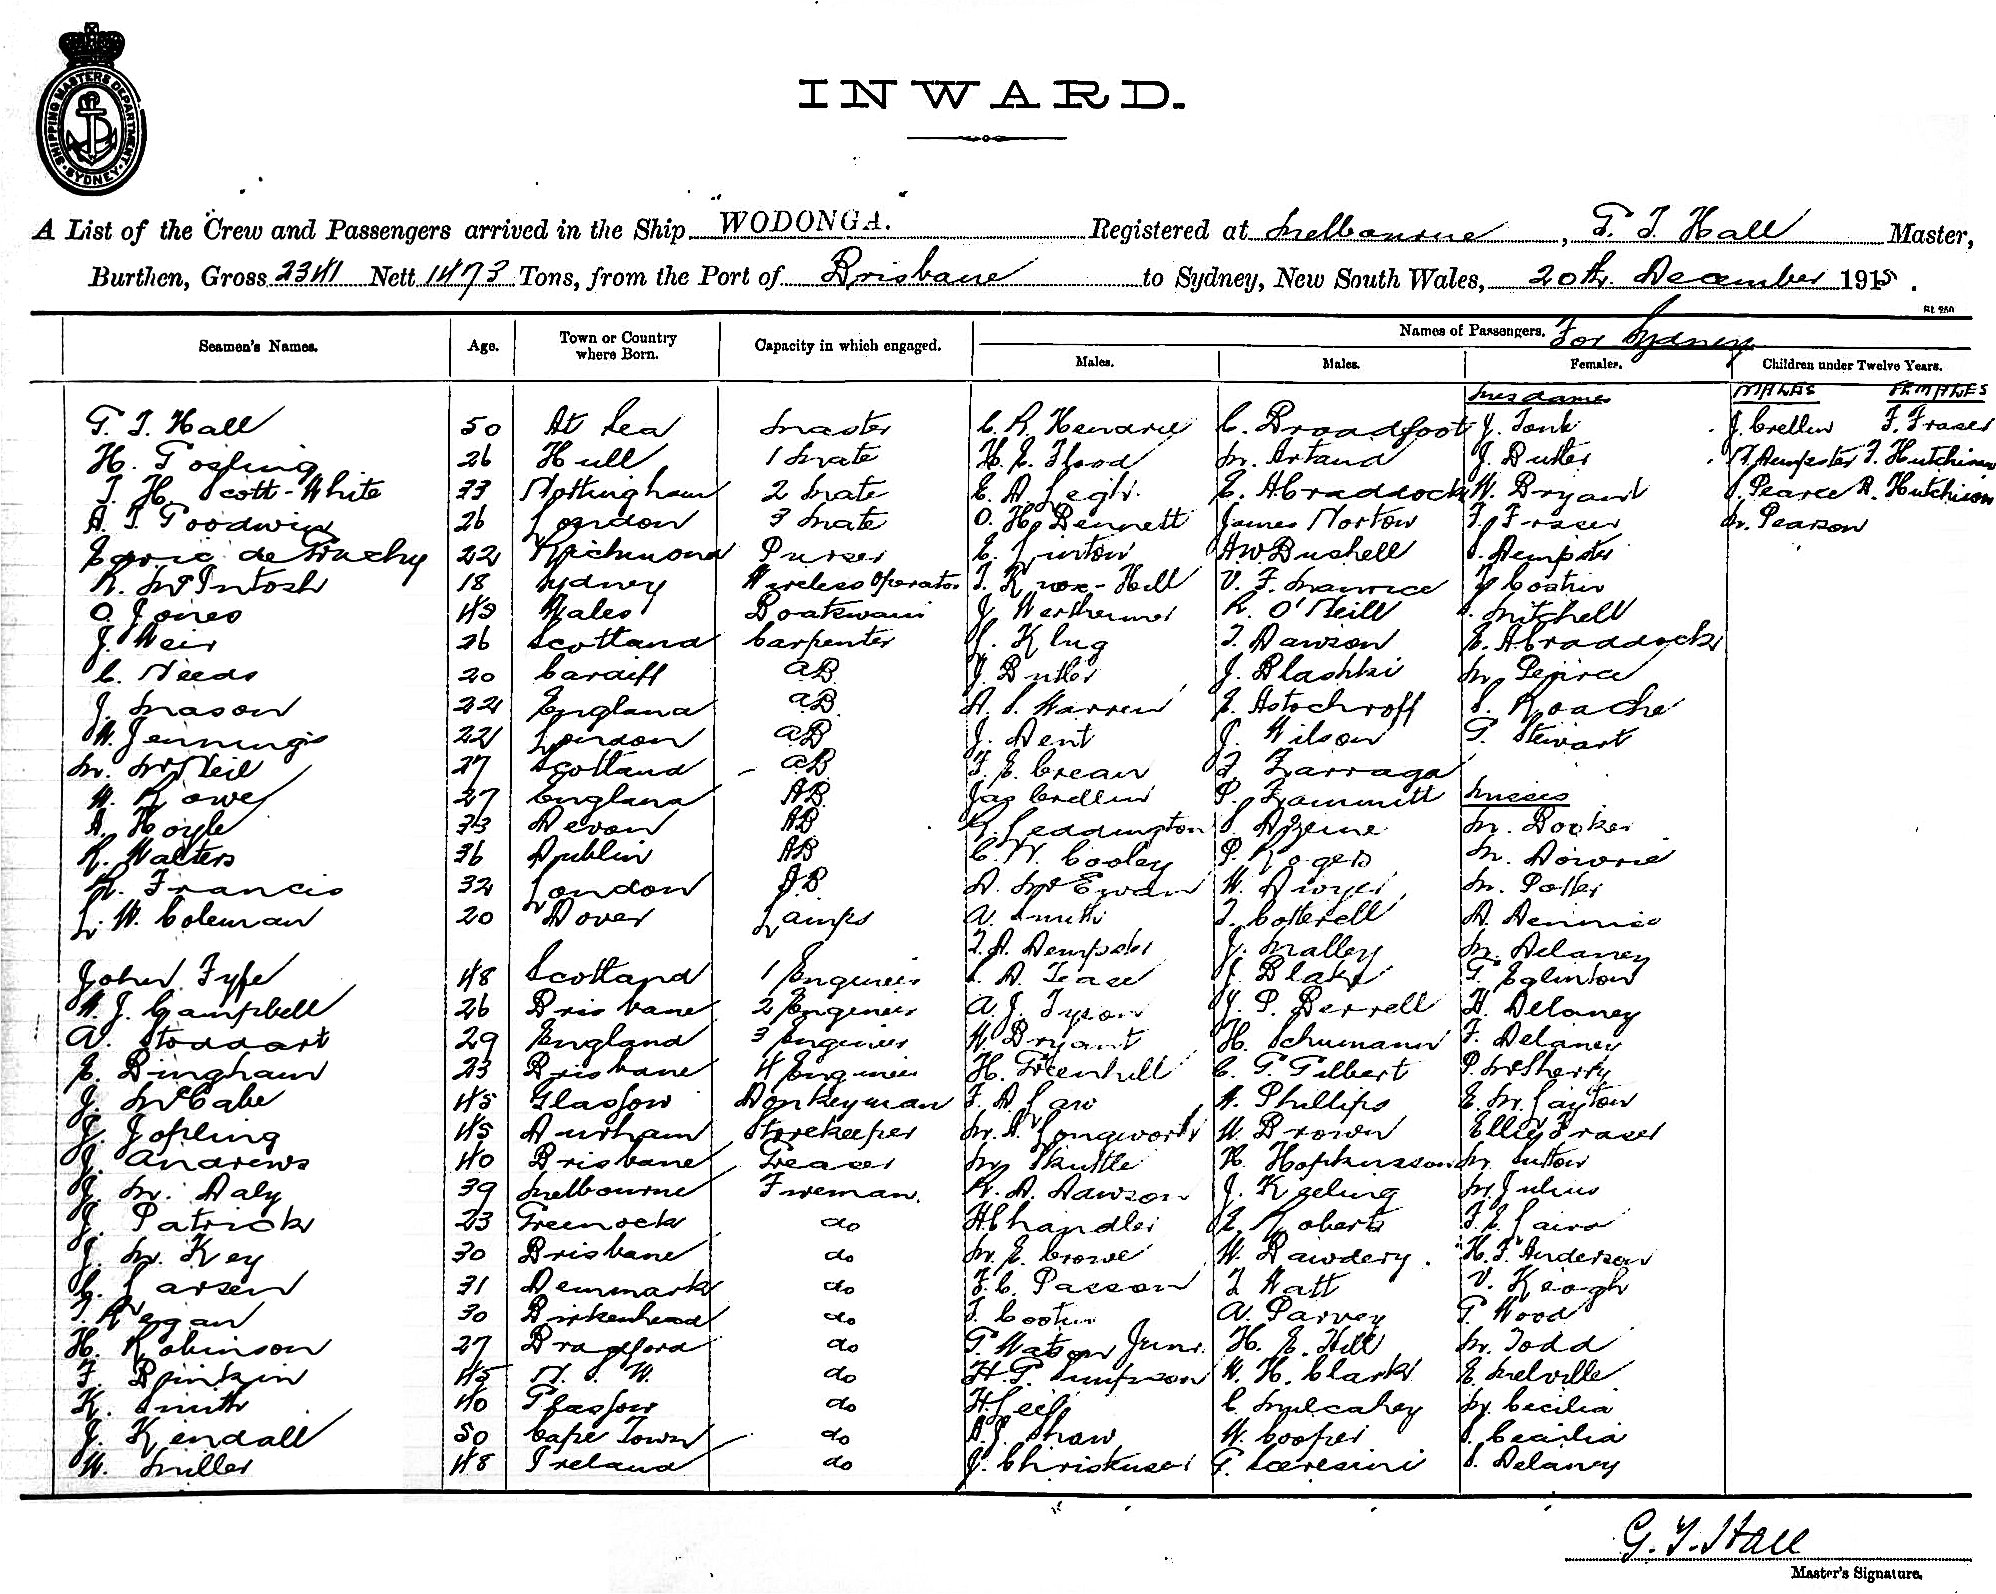 SHIPPING MASTERS DEPARTMENT. SYDNEY.
INWARD.
A List of the Crew and Passengers arrived in the Ship "WODONGA." Registered at Melbourne, G. T. Hall Master,
Burthen, Gross 2341 Nett 1473 Tons, from the Port of Brisbane to Sydney, New South Wales, 20th. December 1915.
Names of Passengers. For Sydney
Seamen's Names. Age. Town or Country where Born. Capacity in which engaged. Males. Males. Females. Children under Twelve Years.
Mesdames MALES FEMALES
G. T. Hall 50 At Sea Master C. R. Hendrie C. Broadfoot J. Tonk J. Crellin F. Fraser
H. Gosling 26 Hull 1 Mate H. E. Flood M. Artaud J. Butler Dempster T. Hutchison
T. H. Scott-White 33 Nottingham 2 Mate E. A. Leigh E. A Craddock W. Bryant S. Pearce A. Hutchison
A. T. Goodwin 26 London 3 Mate O. H. Bennett James Norton F. Fraser M. Pearson
de Gruchy 22 Richmond Purser E. Linton AW Bushell S. Dempster
R. McIntosh 18 Sydney Wireless Operator T. Knox-Hill V. F. Maurice T. Costin
O Jones 43 Wales Boatswain J. Wertheimer R. O'Neill S. Mitchell
J. Weir 26 Scotland Carpenter J. Klug T. Dawson E. A Craddock
C. Needs 20 Cardiff AB J. Butler J. Blashki M. Peirce
J. Mason 22 England AB A. S. Warren E. Astochroff S. Roache
W. Jennings 22 London AB J. Dent J. Wilson G. Stewart
M. McNeil 27 Scotland AB T. E. Crean F. Zarraga
W. Rowe 27 England AB Jas Crellin P. Zammitt Misses
A. Hoyle 33 Devon AB G. Leddington S. Azzeine M. Booker
R. Walters 36 Dublin AB C. W. Cooley P. Rogers M. Dowrie
R. Francis 32 London AB A. McEwan W. Dwyer M. Potter
L. W. Coleman 20 Dover Lamps A. Smith T. Cotterell A. Dennis
T. A. Dempster J. Malley M. Delaney
John Fyfe 48 Scotland 1 Engineer S. A. Tease J. Blake G. Eglinton
W. J. Campbell 26 Brisbane 2 Engineer A. J. Tyson J. P. Berrell H. Delaney
A. Stoddart 29 England 3 Engineer W. Bryant H. Schumann F. Delaney
E. Bingham 23 Brisbane 4 Engineer H. Greenhill C. G. Gilbert P. McSherry
J. McCabe 45 Glasgow Donkeyman F. A Law A. Phillips E. M. Layton
J. Jopling 45 Durham Storekeeper M. A. Longworth W. Brown Elley Fraser
J. Andrews 40 Brisbane Greaser M. Skuttle H. Hopkinsson M. Sutton
J. M. Daly 39 Melbourne Fireman. R. A. Dawson J. Keeling M. Julius
J. Patrick 23 Greenock do H Chandler E. Roberts F. E. Laird
J. M. Key 30 Brisbane do M. E. Crowe W. Bawdery. H. F. Anderson
C. Larsen 31 Denmark do F. C. Passon T Watt V. Keogh
T. Regan 30 Birkenhead do T. Costin A. Parvey G. Wood
H. Robinson 27 Bradford do G. Watson Junr. H. E. Hill M. Todd
F. 45 N. S. W. do H. G. Simpson W. H. Clark E. Melville
K. Smith 40 Glasgow do C. Mulcahey M. Cecilia
J. Kendall 50 Cape Town do A. J. Shaw W. Cooper S. Cecilia
W. Miller 48 Ireland do J. G. Ceresini S. Delaney
G. T. Hall
Master's Signature.